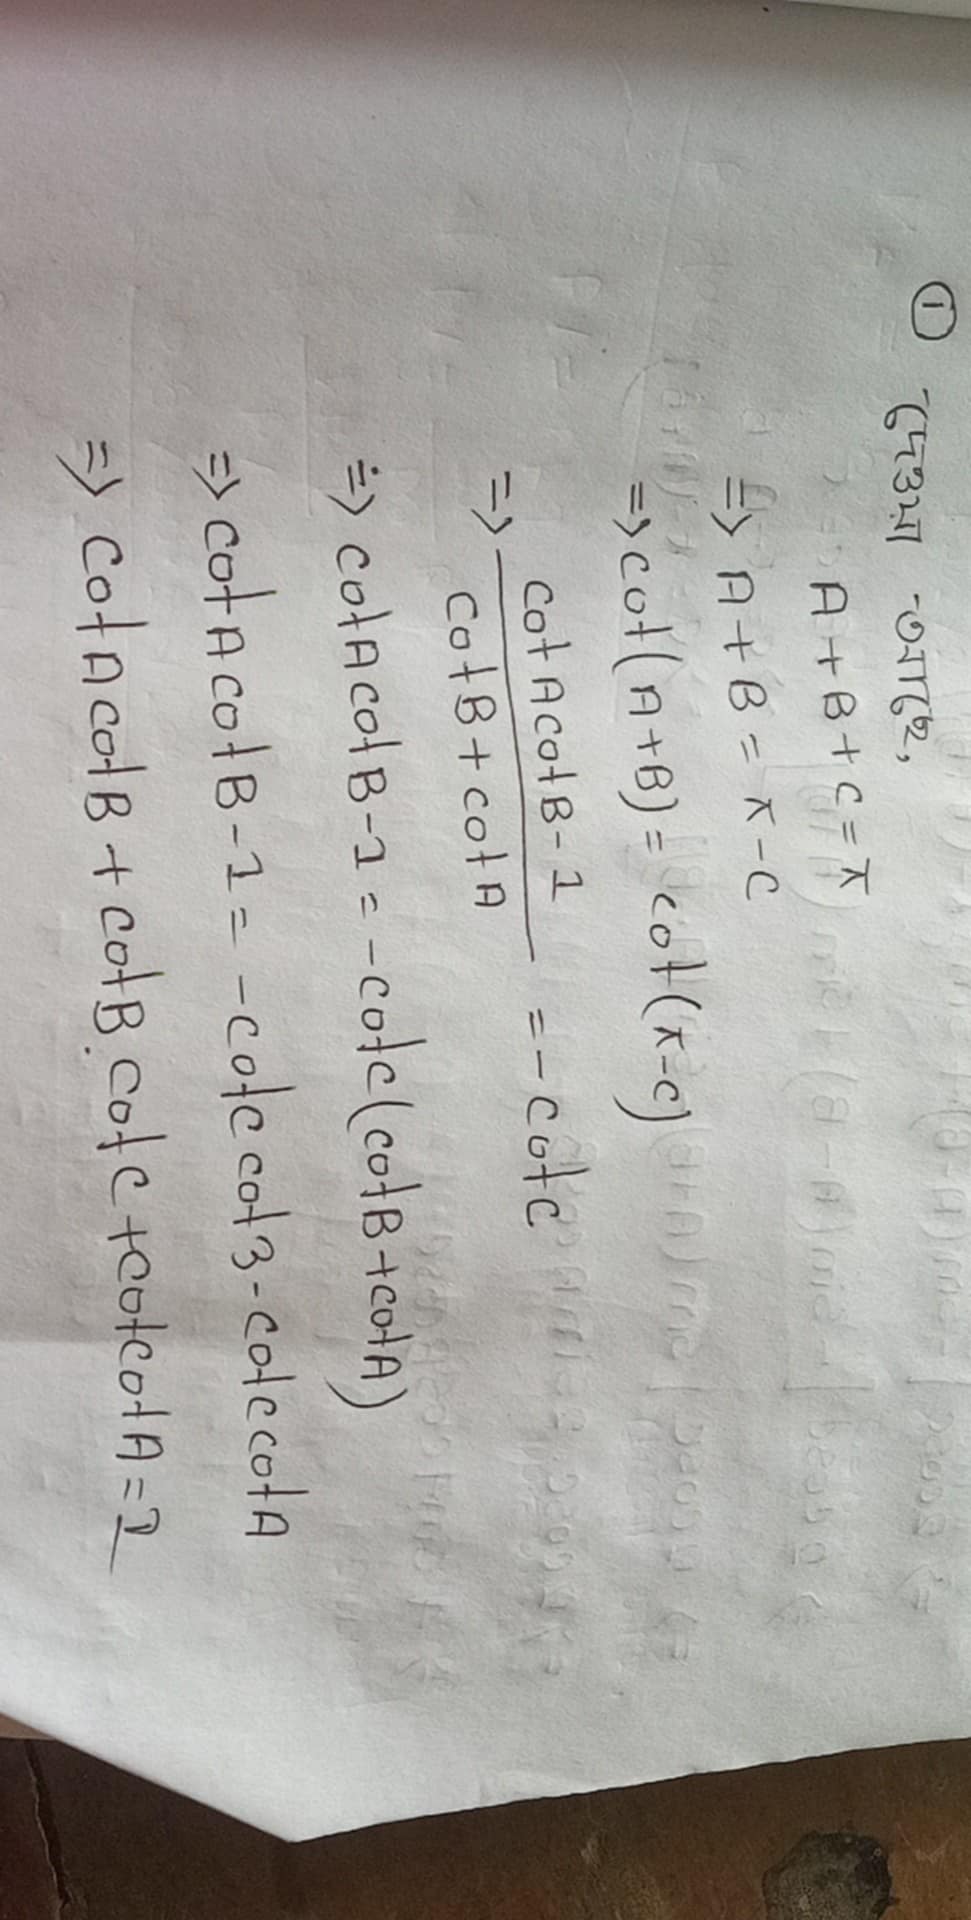 ① দেওয়া আছে,
A+B+C=π
=> A+B=π-C
=> cot(A+B)=cot(π-C)
=> cotAcotB-1 / cotB+cotA = -cotC
=> cotAcotB-1=-cotC(cotB+cotA)
=> cotAcotB-1=-cotCcotB-cotCcotA
=> cotAcotB+cotB.cotC+cotCcotA=1